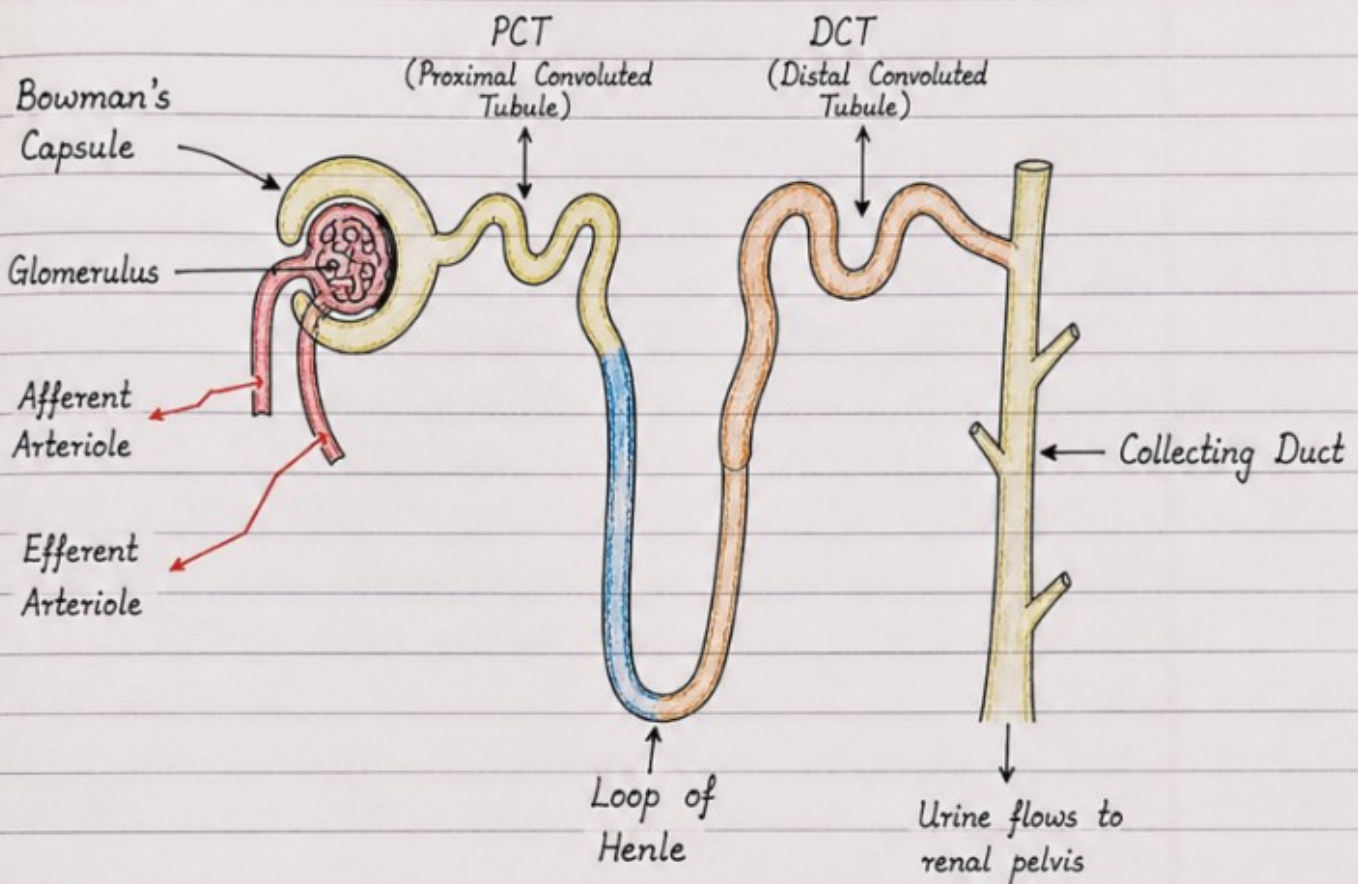 PCT
(Proximal Convoluted
Tubule)
DCT
(Distal Convoluted
Tubule)
Bowman's
Capsule
Glomerulus
Afferent
Arteriole
Efferent
Arteriole
Collecting Duct
Loop of
Henle
Urine flows to
renal pelvis